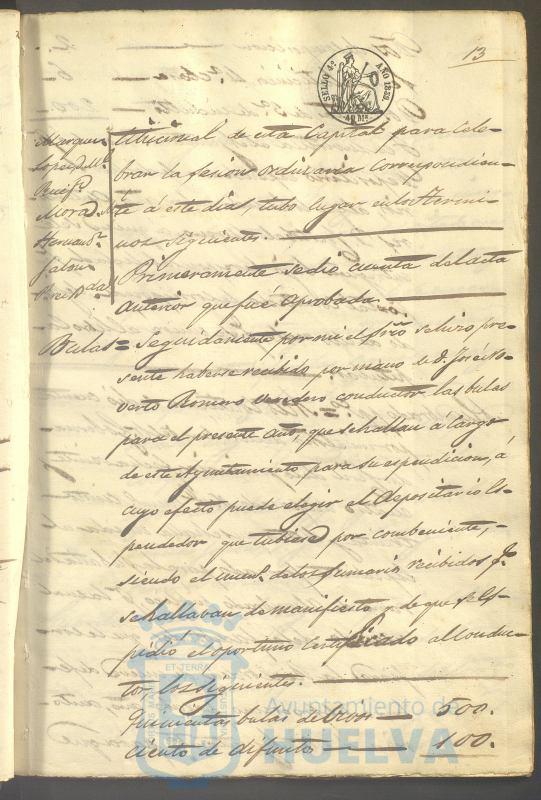 13
SELLO 4º AÑO 1859
40 Ms.
Municipal de esta Capital para cele-
brar la sesion ordinaria correspondien-
te á este dia, tubo lugar en los termi-
nos siguientes.
Marquez
Lopez
Ruiz
Mora
Hernandz
Primeramente se dio cuenta del acta
anterior que fué aprobada.
Bulas = Seguidamente por mi el Srio se hizo pre-
sente haberse recibido por mano de D. José Ro-
verto Romero vendero conductor las bulas
para el presente año, que se hallan á cargo
de este Ayuntamiento para su espendicion, á
cuyo efecto puede elegir el depositario es-
pendedor que tubiese por combeniente,
siendo el num.º de los sumarios recibidos q.e
se hallavan de manifiesto y de que se es-
pidio el oportuno certificado al conduc-
tor, los siguientes.
Quinientas bulas de vivos = 500.
Ciento de difuntos 100.
ET TERRÆ
Ayuntamiento de
HUELVA